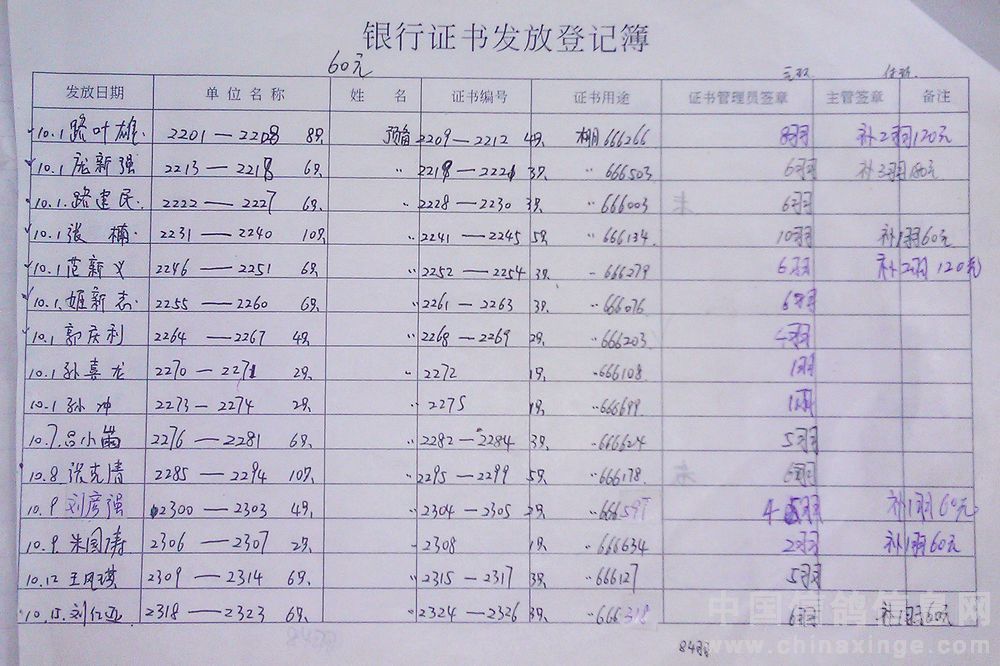 银行证书发放登记簿
60元
发放日期 单位名称 姓名 证书编号 证书用途 证书管理员签章 主管签章 备注
10.1 路叶雄 2201—2208 8只 预备 2209—2212 4只 棚 666266 8羽 补2羽120元
10.1 庞新强 2213—2218 6只 〃 2219—2221 3只 〃 666503 6羽 补3羽180元
10.1 路建民 2222—2227 6只 〃 2228—2230 3只 〃 666003 6羽
10.1 张楠 2231—2240 10只 〃 2241—2245 5只 〃 666134 10羽 补1羽60元
10.1 范新义 2246—2251 6只 〃 2252—2254 3只 〃 666279 6羽 补2羽120元
10.1 姬新志 2255—2260 6只 〃 2261—2263 3只 〃 666076 6羽
10.1 郭庆利 2264—2267 4只 〃 2268—2269 2只 〃 666203 4羽
10.1 孙喜龙 2270—2271 2只 〃 2272 1只 〃 666108 1羽
10.1 孙冲 2273—2274 2只 〃 2275 1只 〃 666699 1羽
10.7 吕小 2276—2281 6只 〃 2282—2284 3只 〃 666624 5羽
10.8 张克清 2285—2294 10只 〃 2295—2299 5只 〃 666178 羽
10.9 刘彦强 2300—2303 4只 〃 2304—2305 2只 〃 666597 4羽 补1羽60元
10.9 朱国涛 2306—2307 2只 〃 2308 1只 〃 666634 2羽 补1羽60元
10.12 王风琪 2309—2314 6只 〃 2315—2317 3只 〃 666127 5羽
10.15 刘仁亚 2318—2323 6只 〃 2324—2326 3只 〃 666318 6羽 补1羽60元
84羽
中国信鸽信息网
www.chinaxinge.com